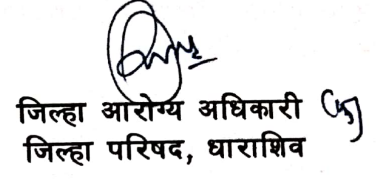 जिल्हा आरोग्य अधिकारी
जिल्हा परिषद, धाराशिव